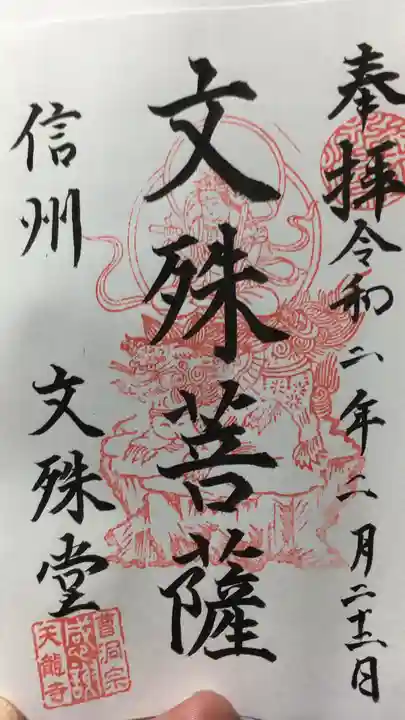 奉拝令和二年二月二十二日
文殊菩薩
信州 文殊堂
曹洞宗
天龍寺